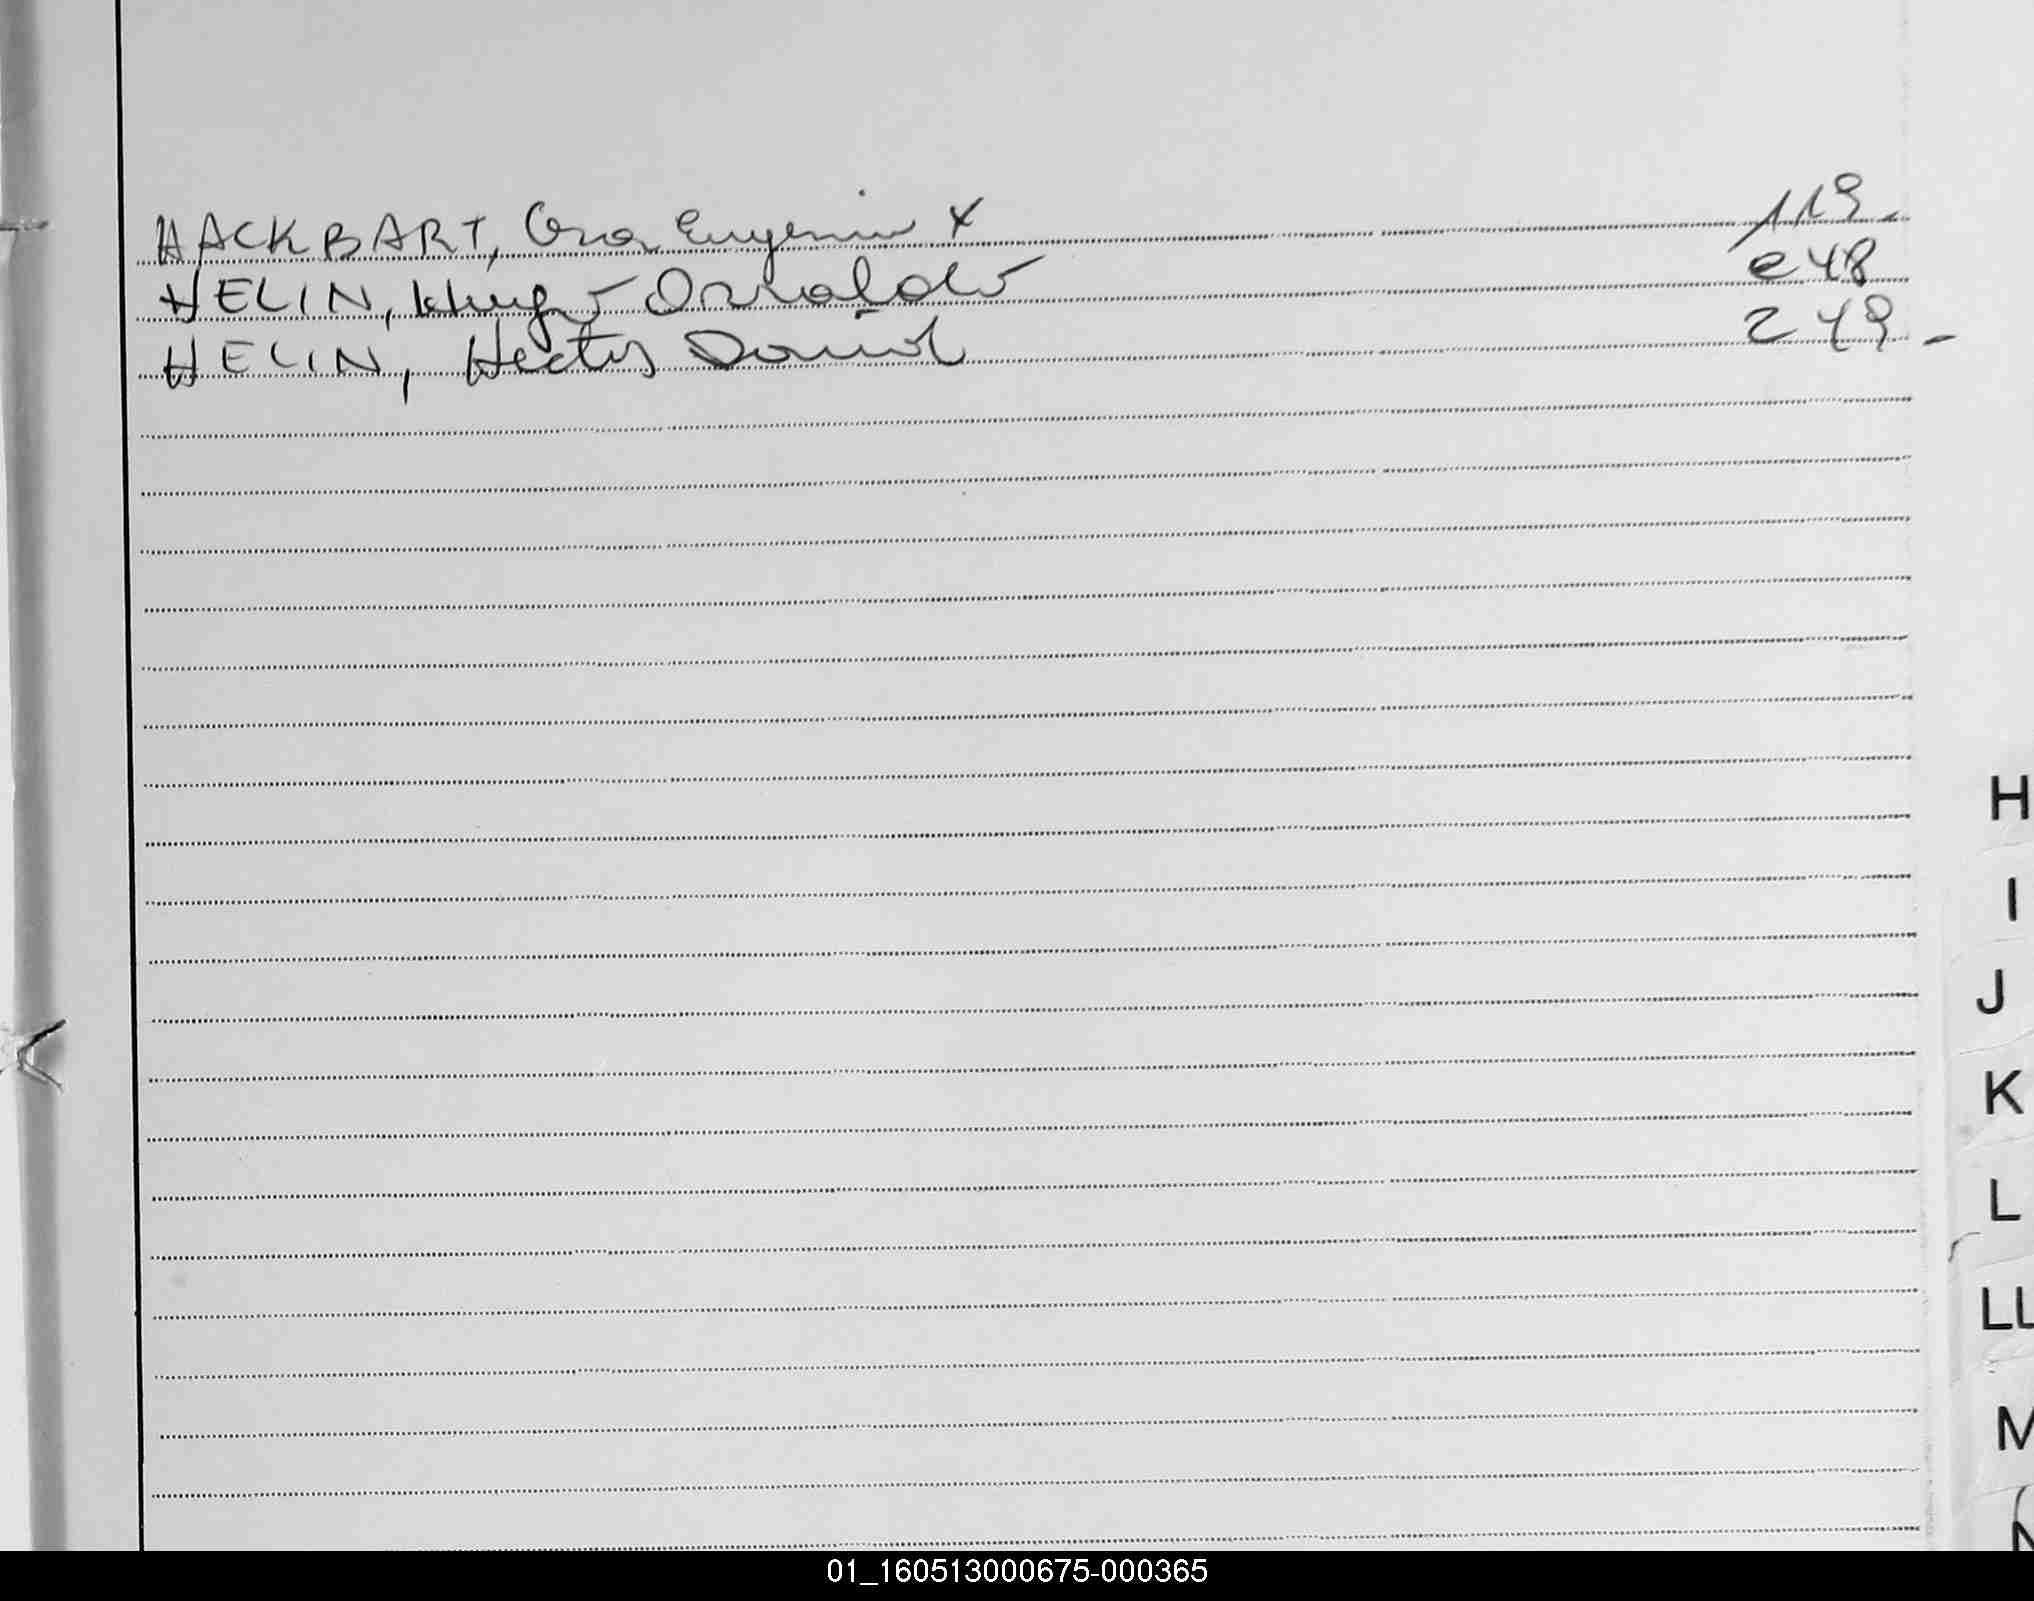 HACKBART, Eugenia x 119.-
HELIN, Hugo Osvaldo 248
HELIN, Hector Daniel 249.-
H
I
J
K
L
LL
M
N
01_160513000675-000365